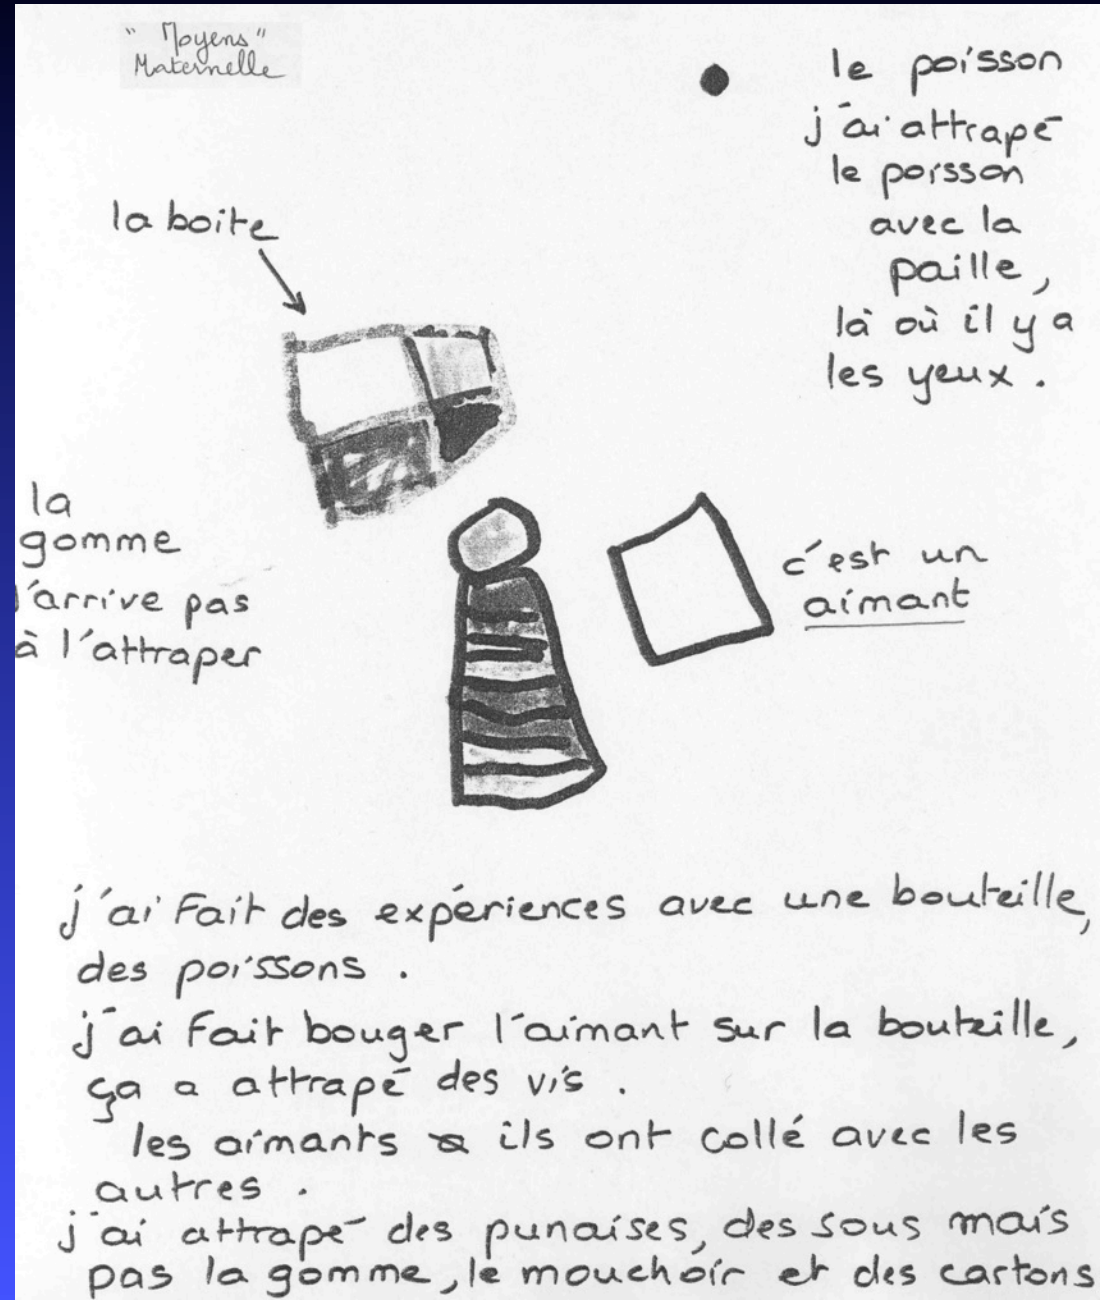 " Moyens "
Maternelle
le poisson
j'ai attrapé
le poisson
avec la
paille,
là où il y a
les yeux.
la boite
la
gomme
j'arrive pas
à l'attraper
c'est un
aimant
j'ai fait des expériences avec une bouteille,
des poissons.
j'ai fait bouger l'aimant sur la bouteille,
ça a attrapé des vis.
les aimants ils ont collé avec les
autres.
j'ai attrapé des punaises, des sous mais
pas la gomme, le mouchoir et des cartons